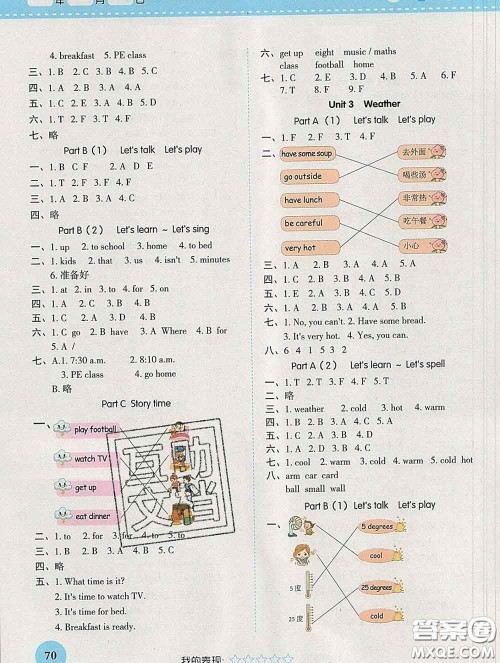 年
4. breakfast 5. PE class
三、1. B 2. C 3. A 4. B 5. C
四、1. A 2. A 3. B 4. A 5. A
五、1. D 2. A 3. E 4. B 5. C
六、1. F 2. T 3. T 4. F 5. T
七、略
Part B（1） Let's talk Let's play
一、1. B C F 2. A D E
二、1. F 2. T 3. F 4. F
三、1. D 2. C 3. A 4. B
四、略
Part B（2） Let's learn ~ Let's sing
一、1. up 2. to school 3. home 4. to bed
二、1. kids 2. that 3. us 4. isn't 5. minutes
6. 准备好
三、1. at 2. in 3. to 4. for 5. to
四、1. A 2. B 3. B 4. A 5. B
五、1. D 2. B 3. A 4. C
六、1. C go 2. B have 3. A Where 4. B for
七、A.1. 7:30 a.m. 2. 8:10 a.m.
3. PE class 4. go home
B. 略
Part C Story time
一、
play football
watch TV
get up
eat dinner
二、1. to 2. for 3. for 4. to 5. to
三、1. A 2. B 3. A 4. B 5. C
四、1. B 2. A 3. B 4. A
五、1. What time is it?
2. It's time to watch TV.
3. It's time for bed.
4. Breakfast is ready.
70
六、get up eight music / maths
class football home
七、1. C 2. E 3. D 4. A 5. F 6. B
7. T 8. F 9. F
Unit 3 Weather
Part A（1） Let's talk Let's play
一、1. F 2. F 3. F 4. T
二、
have some soup 去外面
go outside 喝些汤
have lunch 非常热
be careful 吃午餐
very hot 小心
三、1. A 2. B 3. A 4. A 5. B
四、1. A 2. B 3. A 4. B 5. A
五、1. D 2. E 3. A 4. C 5. B
六、1. C 2. A 3. A 4. B 5. A
七、1. No, you can't. 2. Have some bread.
3. It's very hot. 4. Yes, you can.
八、6 4 1 5 3 2
Part A（2） Let's learn ~ Let's spell
一、1. T 2. T 3. F 4. F
三、1. weather 2. cold 3. warm 4. hot
四、1. A 2. B 3. A 4. B
五、1. A 2. B 3. B 4. A
六、1. C 2. E 3. B 4. D 5. A
七、1. cool 2. warm 3. warm 4. cold 5. cold hot
八、arm car card
ball small wall
Part B（1） Let's talk Let's play
一、
5 degrees
cool
5 度 25 degrees
25 度 cold
我的表现:
互动
交档
答案圈
MXQE.COM